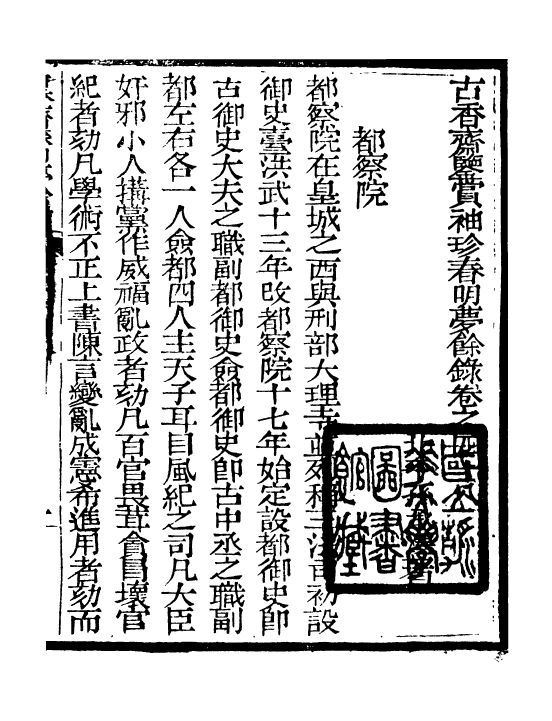 古香齋鑒賞袖珍春明夢餘錄卷之四
都察院
都察院在皇城之西與刑部大理寺並列稱三法司初設
御史臺洪武十三年改都察院十七年始定設都御史卽
古御史大夫之職副都御史僉都御史卽古中丞之職副
都左右各一人僉都四人主天子耳目風紀之司凡大臣
奸邪小人搆黨作威福亂政者劾凡百官畏茸貪冒壞官
紀者劾凡學術不正上書陳言變亂成憲希進用者劾而